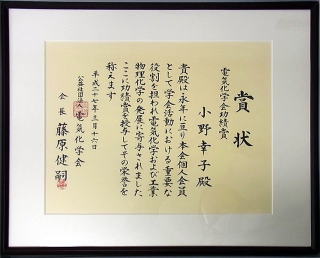 賞状
電気化学会功績賞
小野幸子殿
貴殿は永年に亘り本会個人会員
として学会活動における重要な
役割を担われ電気化学および工業
物理化学の発展に寄与されました
ここに功績賞を授与してその栄誉を
称えます
平成二十七年三月十六日
公益社団法人電気化学会
会長 藤原健嗣